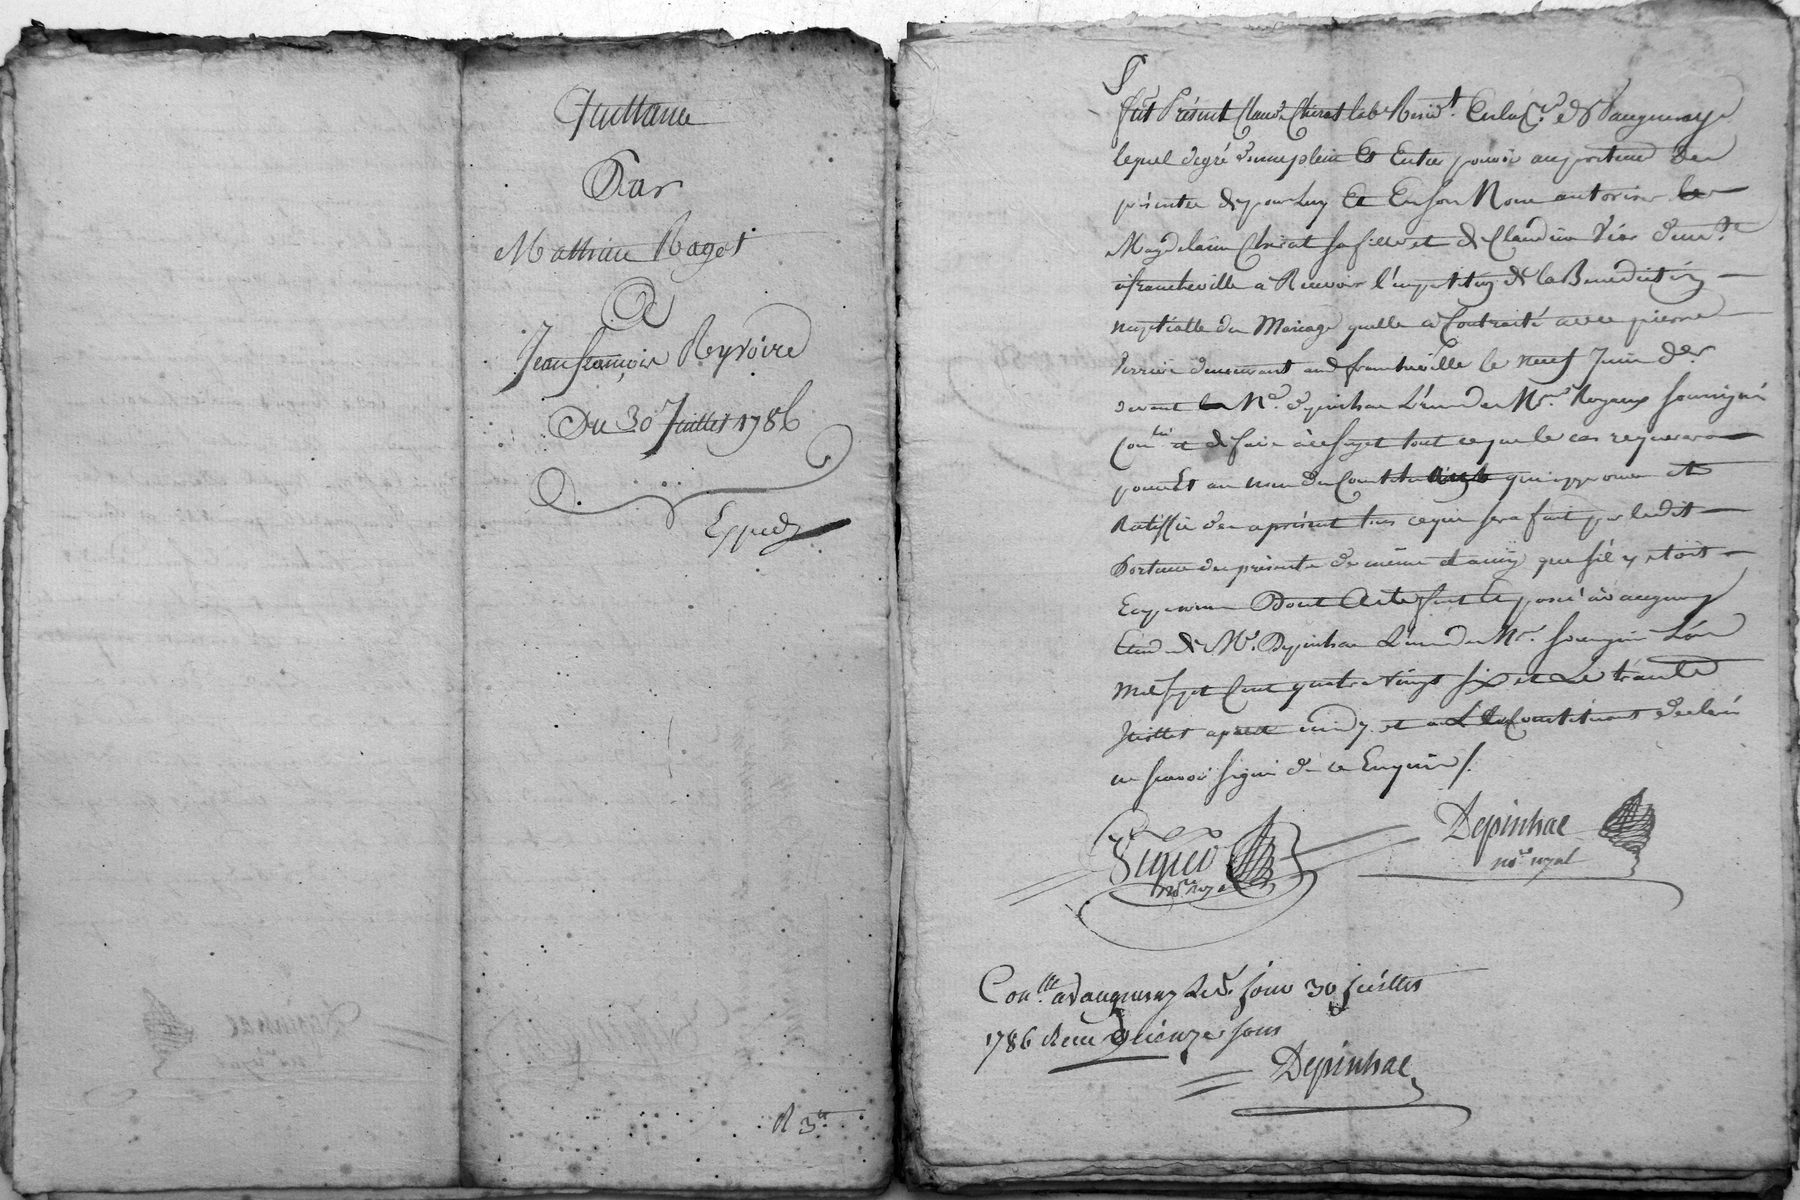 Quittance
Par
Mathieu Raget
A
Jean françois Reyvoire
Du 30 Juillet 1786
Exped
R 3
fut Présent Claude Chirat lab. Resid.t En la de Vaugneray
lequel degré donne plein Et Entier pouvoir au porteur des
présentes de pour Luy Et En son Nom autoriser
Magdelaine Chirat sa fille et de Claudine demte
a francheville a Recevoir l'impartition de la Benediction
nuptialle du Mariage quelle a Contracté avec pierre
demeurant aud francheville le neuf Juin der
devant Me depinhac L'un des Nres Royaux soussignés
et de faire à ce sujet tout ce que le cas requerera
pour Et au nom du Constituant qui approuve et
Ratiffie des apresent tous ce qui sera fait par ledit
Porteur des présentes de même et ainsy que s'il y etoit
En personne Dont Acte fait Et passé à Vaugneray
Etude de Me Depinhac L'un des Nres soussignés L'an
Mil sept Cent quatre vingt six et Le trante
Juillet apres midy et a Le Constituant declaré
ne scavoir signer de ce Enquis /.
Depinhac
nore royal
nore royal
Conllé a Vaugneray Led. Jour 30 juillet
1786 Recu quinze sous
Depinhac